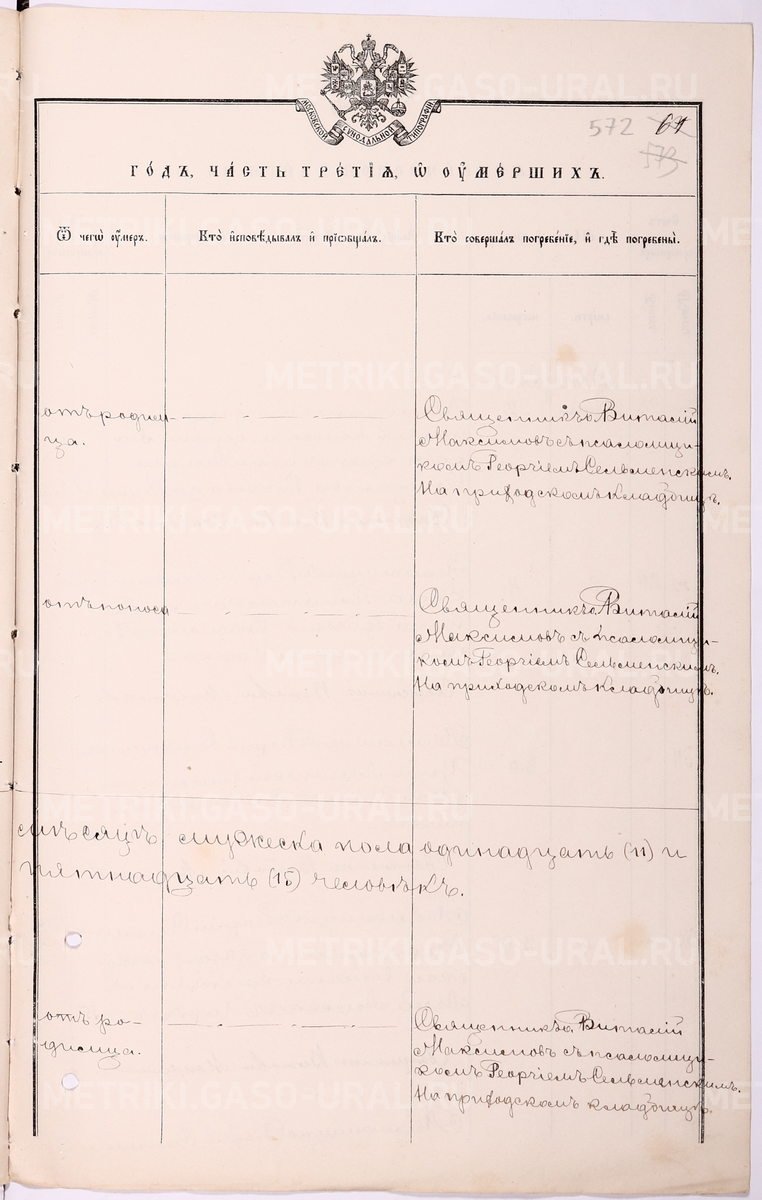 METRIKI.GASO-URAL.RU
МОСКОВСКОЙ СѴНОДАЛЬНОЙ ТИПОГРАФІИ
572 61
573
ГО́ДЪ, ЧА́СТЬ ТРЕ́ТІѦ, Ѡ ОУМЕ́РШИХЪ.
Ѿ чегѡ̀ оу́меръ.
Кто̀ и҆сповѣ́дывалъ и҆ прїѡбща́лъ.
Кто̀ соверша́лъ погребе́нїе, и҆ гдѣ̀ погребены̀.
отъ родим-
ца.
Священникъ Виталій
Максимовъ съ псаломщи-
комъ Георгіемъ Сельменскимъ.
На приходскомъ кладбищѣ.
отъ поноса
Священникъ Виталій
Максимовъ съ псаломщи-
комъ Георгіемъ Сельменскимъ.
На приходскомъ кладбищѣ.
мѣсяцъ мужеска пола одинадцать (11) и
пятнадцать (15) человѣкъ.
отъ ро-
димца.
Священникъ Виталій
Максимовъ съ псаломщи-
комъ Георгіемъ Сельменскимъ.
На приходскомъ кладбищѣ.